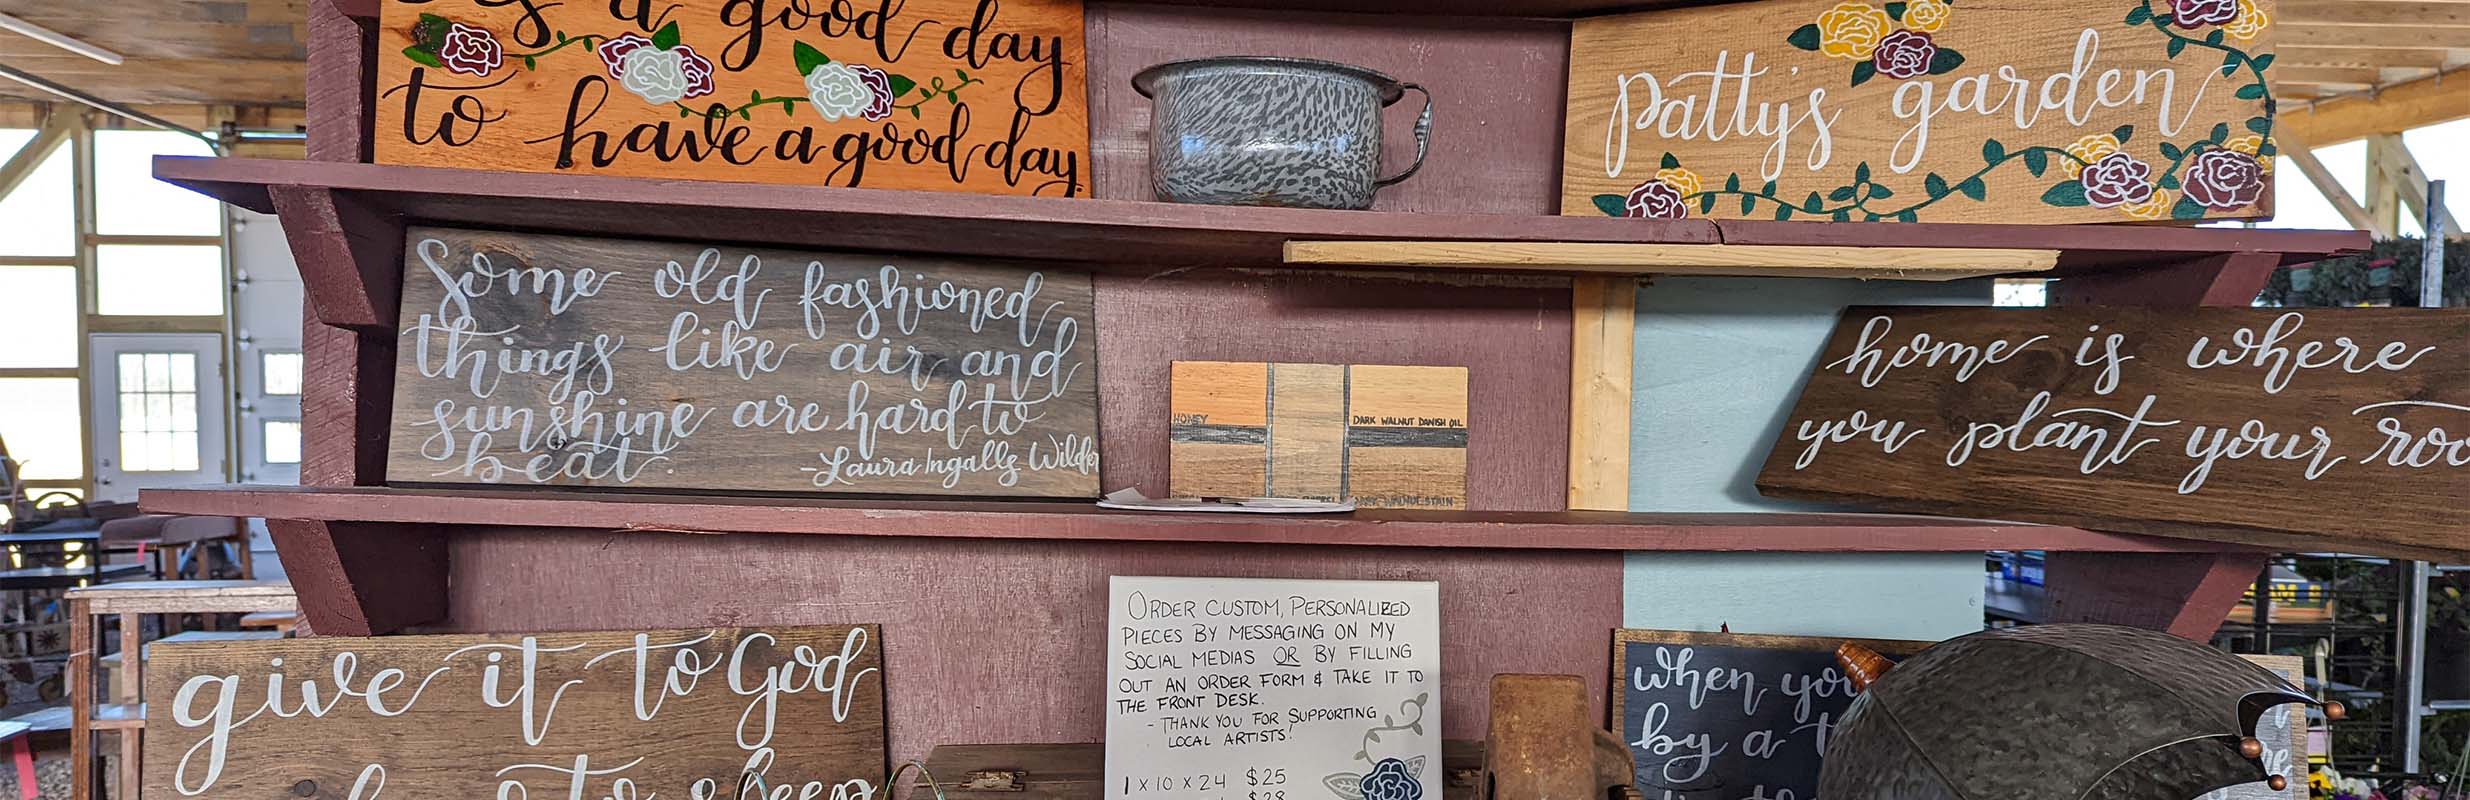 a good day
to have a good day.
Patty's garden
Some old fashioned
things like air and
sunshine are hard to
beat.
-Laura Ingalls Wilder
HONEY
DARK WALNUT DANISH OIL
DARK WALNUT STAIN
home is where
you plant your
give it to God
to sleep
ORDER CUSTOM, PERSONALIZED
PIECES BY MESSAGING ON MY
SOCIAL MEDIAS OR BY FILLING
OUT AN ORDER FORM & TAKE IT TO
THE FRONT DESK.
- THANK YOU FOR SUPPORTING
LOCAL ARTISTS!
1 x 10 x 24 $25
$28
when you
by a